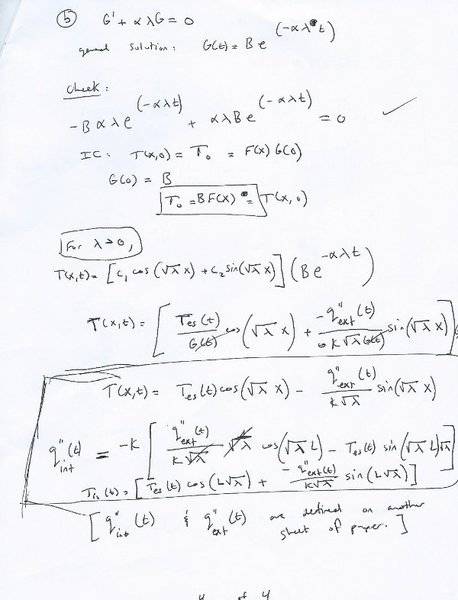 (b) G' + αλG = 0
general solution: G(t) = B e^(-αλt)
Check:
-Bαλe^(-αλt) + αλBe^(-αλt) = 0 ✓
IC: T(x,0) = T₀ = F(x) G(0)
G(0) = B
T₀ = BF(x) = T(x,0)
For λ>0,
T(x,t) = [C₁ cos(√λ x) + C₂ sin(√λ x)] (Be^-αλt)
T(x,t) = [T_es(t)/G(t) cos(√λ x) + -q''_ext(t)/K√λ G(t) sin(√λ x)]
T(x,t) = T_es(t) cos(√λ x) - q''_ext(t)/K√λ sin(√λ x)
q''_int(t) = -K [q''_ext(t)/K√λ √λ cos(√λ L) - T_es(t) sin(√λ L)√λ]
T_in(t) = [T_es(t) cos(L√λ) + -q''_ext(t)/K√λ sin(L√λ)]
[q''_int(t) & q''_ext(t) are defined on another
sheet of paper.]
of 4